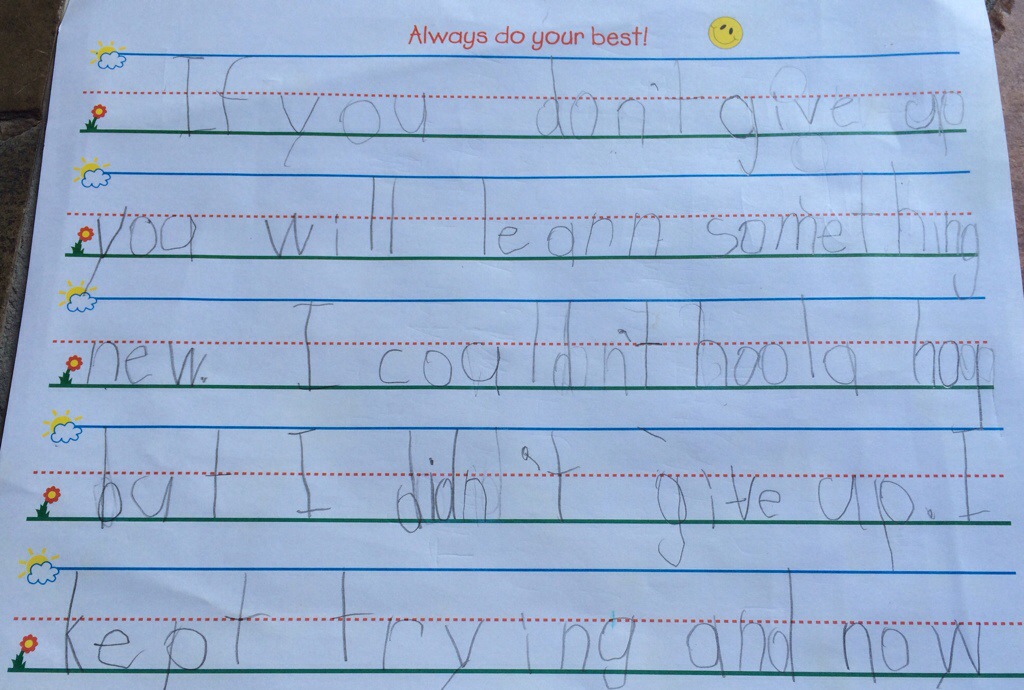 Always do your best!
If you don't give up
you will learn something
new. I couldn't hoola hoop
but I didn't give up. I
kept trying and now